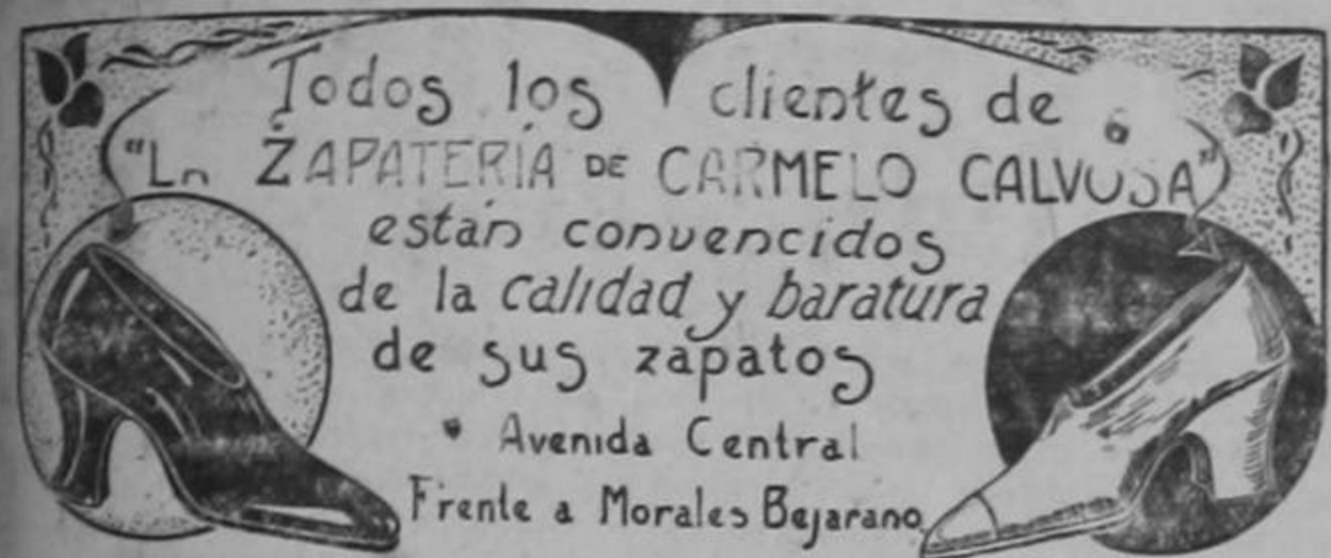 Todos los clientes de
"La ZAPATERÍA DE CARMELO CALVOSA"
están convencidos
de la calidad y baratura
de sus zapatos
Avenida Central
Frente a Morales Bejarano